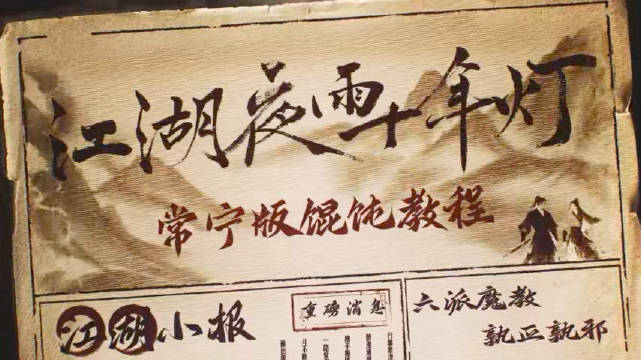 江湖夜雨十年灯
常宁版馄饨教程
江湖小报
重磅消息
六派魔教
孰正孰邪